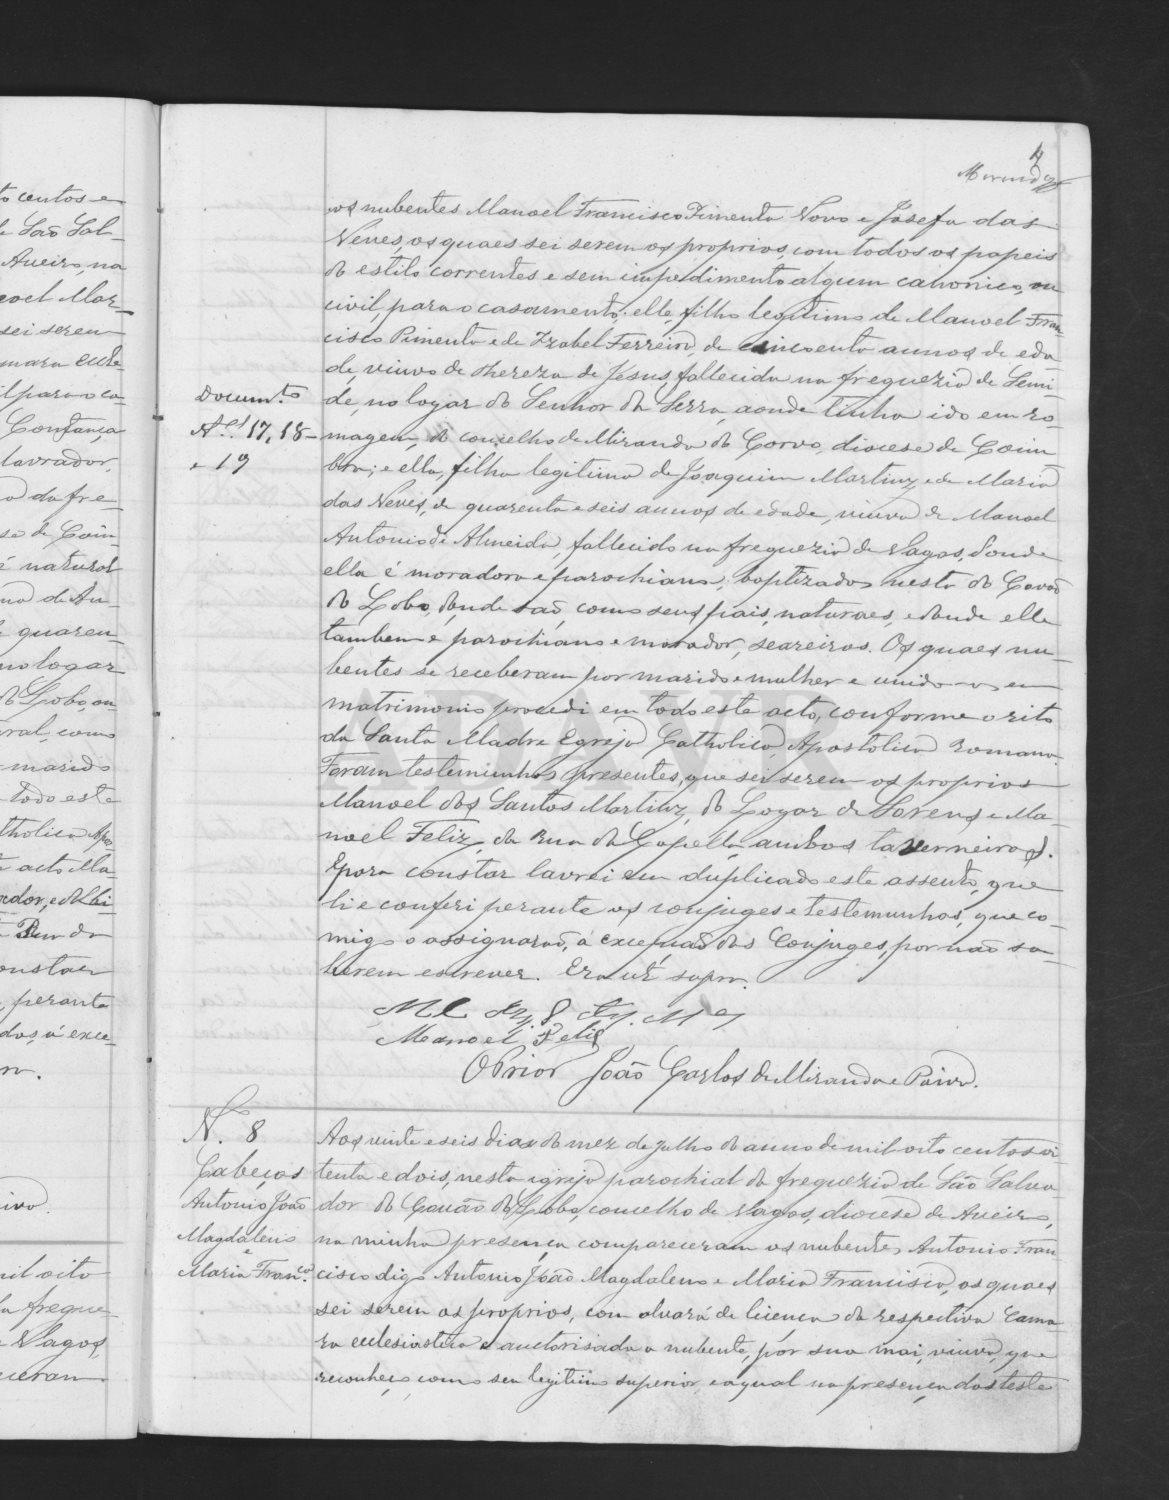 4
Mirand
os nubentes Manoel Francisco Pimenta Novo e Josefa das
Neves, os quaes sei serem os proprios, com todos os papeis
do estilo correntes e sem impedimento algum canonico, ou
civil para o casamento: elle, filho legitimo de Manoel Fran-
cisco Pimenta e de Izabel Ferreira, de cincoenta annos de eda
de, viuvo de Thereza de Jesus, fallecida na freguezia de Semi-
de, no logar do Senhor da Serra, aonde tinha ido em ro-
magem, do concelho de Miranda do Corvo, diocese de Coim
bra; e ella, filha legitima de Joaquim Martins, e de Maria
das Neves, de quarenta e seis annos de edade, viuva de Manoel
Antonio de Almeida, fallecido na freguezia de Vagos, donde
ella é moradora e parochiana; baptizados nesta do Covão
do Lobo, donde são, como seus pais, naturaes, e donde elle
tambem é parochiano e morador, seareiros. Os quaes nu-
bentes se receberam por marido e mulher e unido-os em
matrimonio procedi em todo este acto, conforme o rito
da Santa Madre Egreja Catholica Apostolica Romana.
Foram testemunhas presentes, que sei serem os proprios
Manoel dos Santos Martins, do Logar de Sorens e Ma-
noel Feliz, da Rua da Capella, ambos taverneiros.
E para constar lavrei em duplicado este assento, que
li e conferi perante os conjuges e testemunhas, que co-
migo o assignarão, á excepção dos Conjuges, por não sa-
berem escrever. Era ut supra.
Manoel Feliz
O Prior João Carlos de Miranda e Paiva.
Documt.os
N.os 17, 18-
e 19
N.º 8
Cabeços
Antonio João
Magdaleno
e
Maria Franc.ca
Aos vinte e seis dias do mez de Julho do anno de mil oito centos oi-
tenta e dois, nesta igreja parochial da freguezia de São Salva-
dor do Covão do Lobo, concelho de Vagos, diocese de Aveiro,
na minha presença compareceram os nubentes Antonio Fran-
cisco digo Antonio João Magdaleno e Maria Francisca, os quaes
sei serem os proprios, com alvará de licença da respectiva Cama-
ra ecclesiastica e auctorisada a nubente, por sua mai, viuva, que
reconheço como seu legitimo superior, e a qual na presença das teste
to centos e
São Sal-
Aveiro, na
noel Mar-
sei serem
mara eccle-
il para o ca-
Confiança
lavrador,
da fre-
se de Coim-
é natural
no de An-
quaren-
no logar
do Lobo, on-
ral, como
marido
todo este
tholica Apos-
acto Ma-
Rua da
onstar
perante
das, á exce-
ra.
iva.
mil oito
da fregue-
Vagos,
ceram